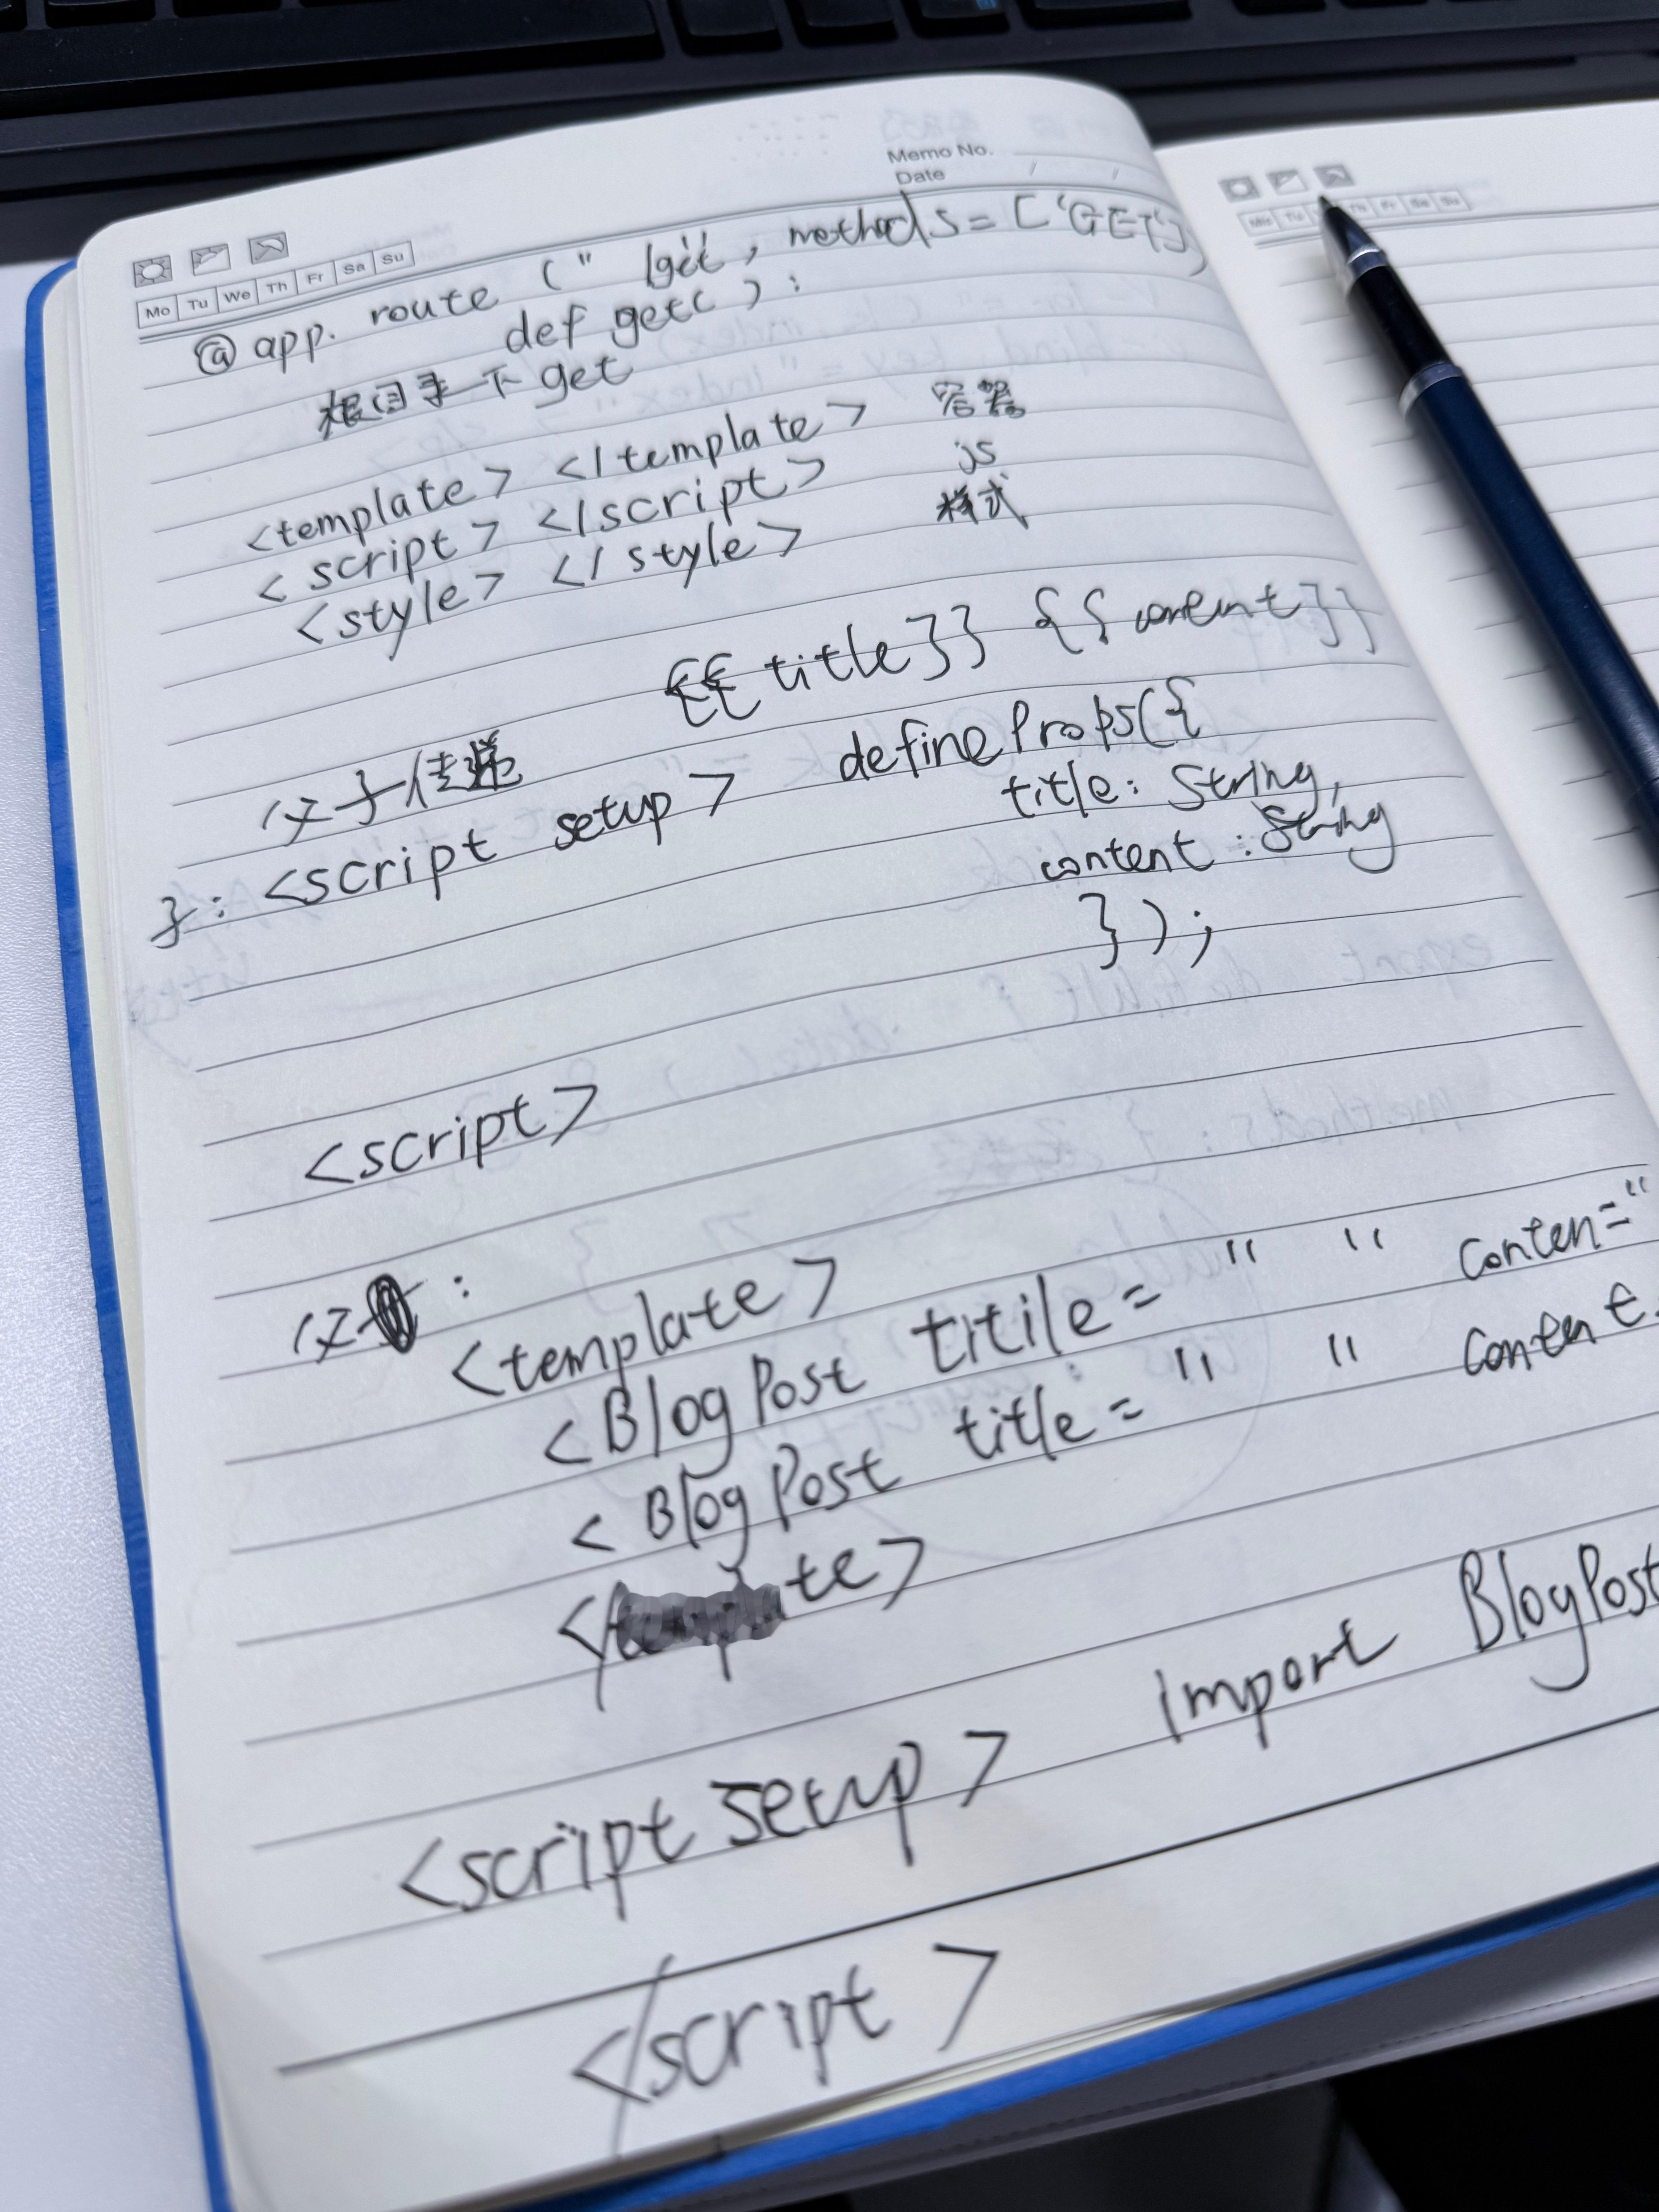 Memo No.
Date
Mo Tu We Th Fr Sa Su
@app. route (" /get , methods = ['GET']
def get( ) :
根目录下 get
<template> </template> 容器
<script> </script> js
<style> </style> 样式
{{ title }} {{ content }}
父子传递
子: <script setup> defineProps({
title: String,
content : String
});
<script>
父 :
<template>
<BlogPost titile = " " conten="
<BlogPost title = " " content
te>
<script setup> import BlogPost
</script>